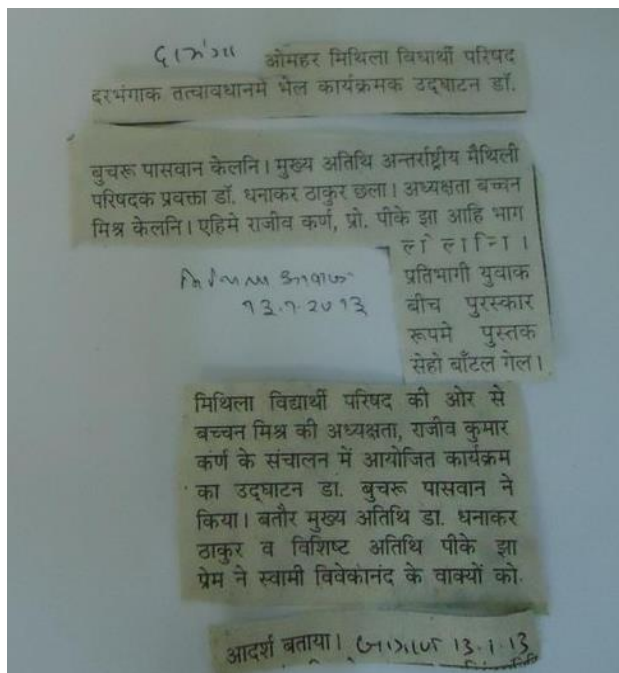 दरभंगा ओमहर मिथिला विधार्थी परिषद
दरभंगाक तत्वावधानमे भेल कार्यक्रमक उद्घाटन डॉ.
बुचरू पासवान केलनि। मुख्य अतिथि अन्तर्राष्ट्रीय मैथिली
परिषदक प्रवक्ता डॉ. धनाकर ठाकुर छला। अध्यक्षता बच्चन
मिश्र केलनि। एहिमे राजीव कर्ण, प्रो. पीके झा आहि भाग
लेलनि।
प्रतिभागी युवाक
बीच पुरस्कार
रूपमे पुस्तक
सेहो बाँटल गेल।
मिथिला आवाज
१३.१.२०१३
मिथिला विद्यार्थी परिषद की ओर से
बच्चन मिश्र की अध्यक्षता, राजीव कुमार
कर्ण के संचालन में आयोजित कार्यक्रम
का उद्घाटन डा. बुचरू पासवान ने
किया। बतौर मुख्य अतिथि डा. धनाकर
ठाकुर व विशिष्ट अतिथि पीके झा
प्रेम ने स्वामी विवेकानंद के वाक्यों को.
आदर्श बताया। जागरण १३.१.१३